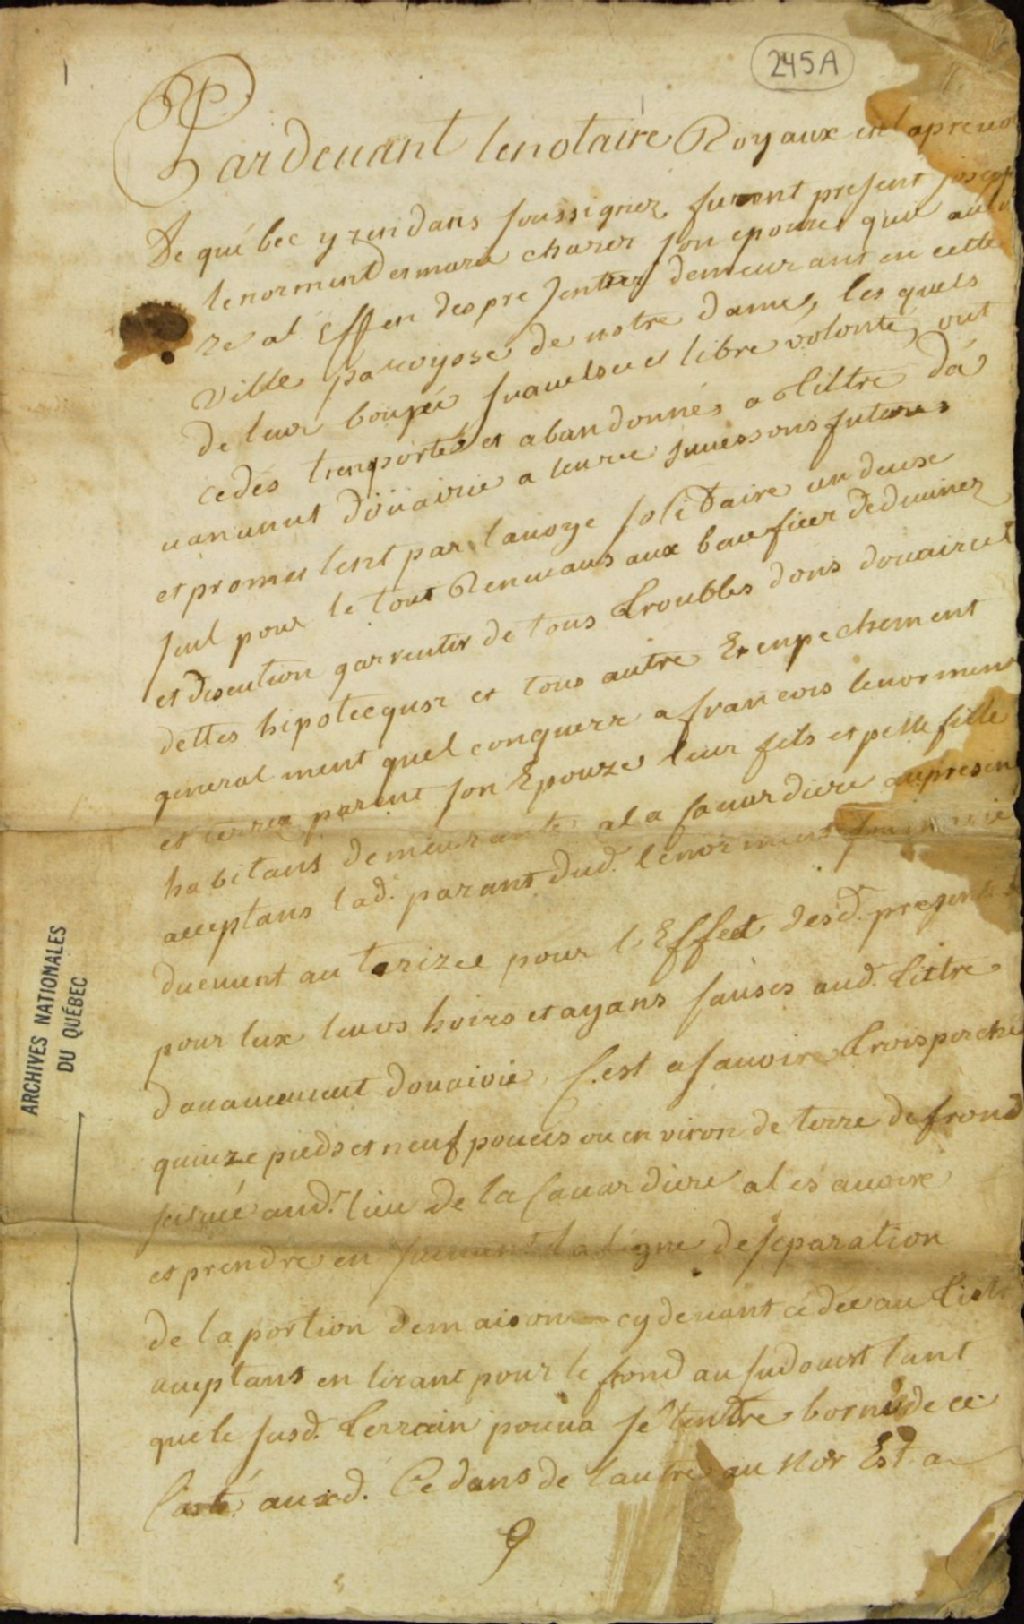 245A
Pardeuant lenotaire Royaux en laprevo
De québec y rezidans soussignez furent present Joseph
lenorment et marie charer son epouze quil auto
rize al Effen des presentes demeurans en cette
Ville paroysse de nostre dame, les quels
de leur bon gré franchise et libre volonté, ont
cedés transportés et abandonnés a tiltre da
uancement doüairie a leur sucessons futures
et prometent par lauoye solidaire un deux
seul pour le tout Renonceans aux benefices de
et discution garrentir de tous troubles dons douaires
dettes hipotecques et tous autre Enpechement
general ment quel conquerz a francois lenorment
et parent son Epouze leur fils et belle fille
habitans demeurante a la Canardiere au present
acceptans lad. parans dud. lenorment son marie
duement autorizee pour l'Effect desd. presentes
pour eux leurs hoirs et ayans causes aud. tiltre
dauancement douairie, C'est asauoire trois perches
quinze pieds et neuf pouces ou environ de terre de frond
scitué aud. lieu de la Canardiere al es auoire
et prendre en suivant la ligne de separation
de la portion dem aison cy deuant cedée au tiltre
acceptans en tirant pour le frond au sudouest tant
que le susd. terrain poura s'etendre borné de ce
Costé auxd. Cedans de lautre au Nor Est a
ARCHIVES NATIONALES
DU QUÉBEC